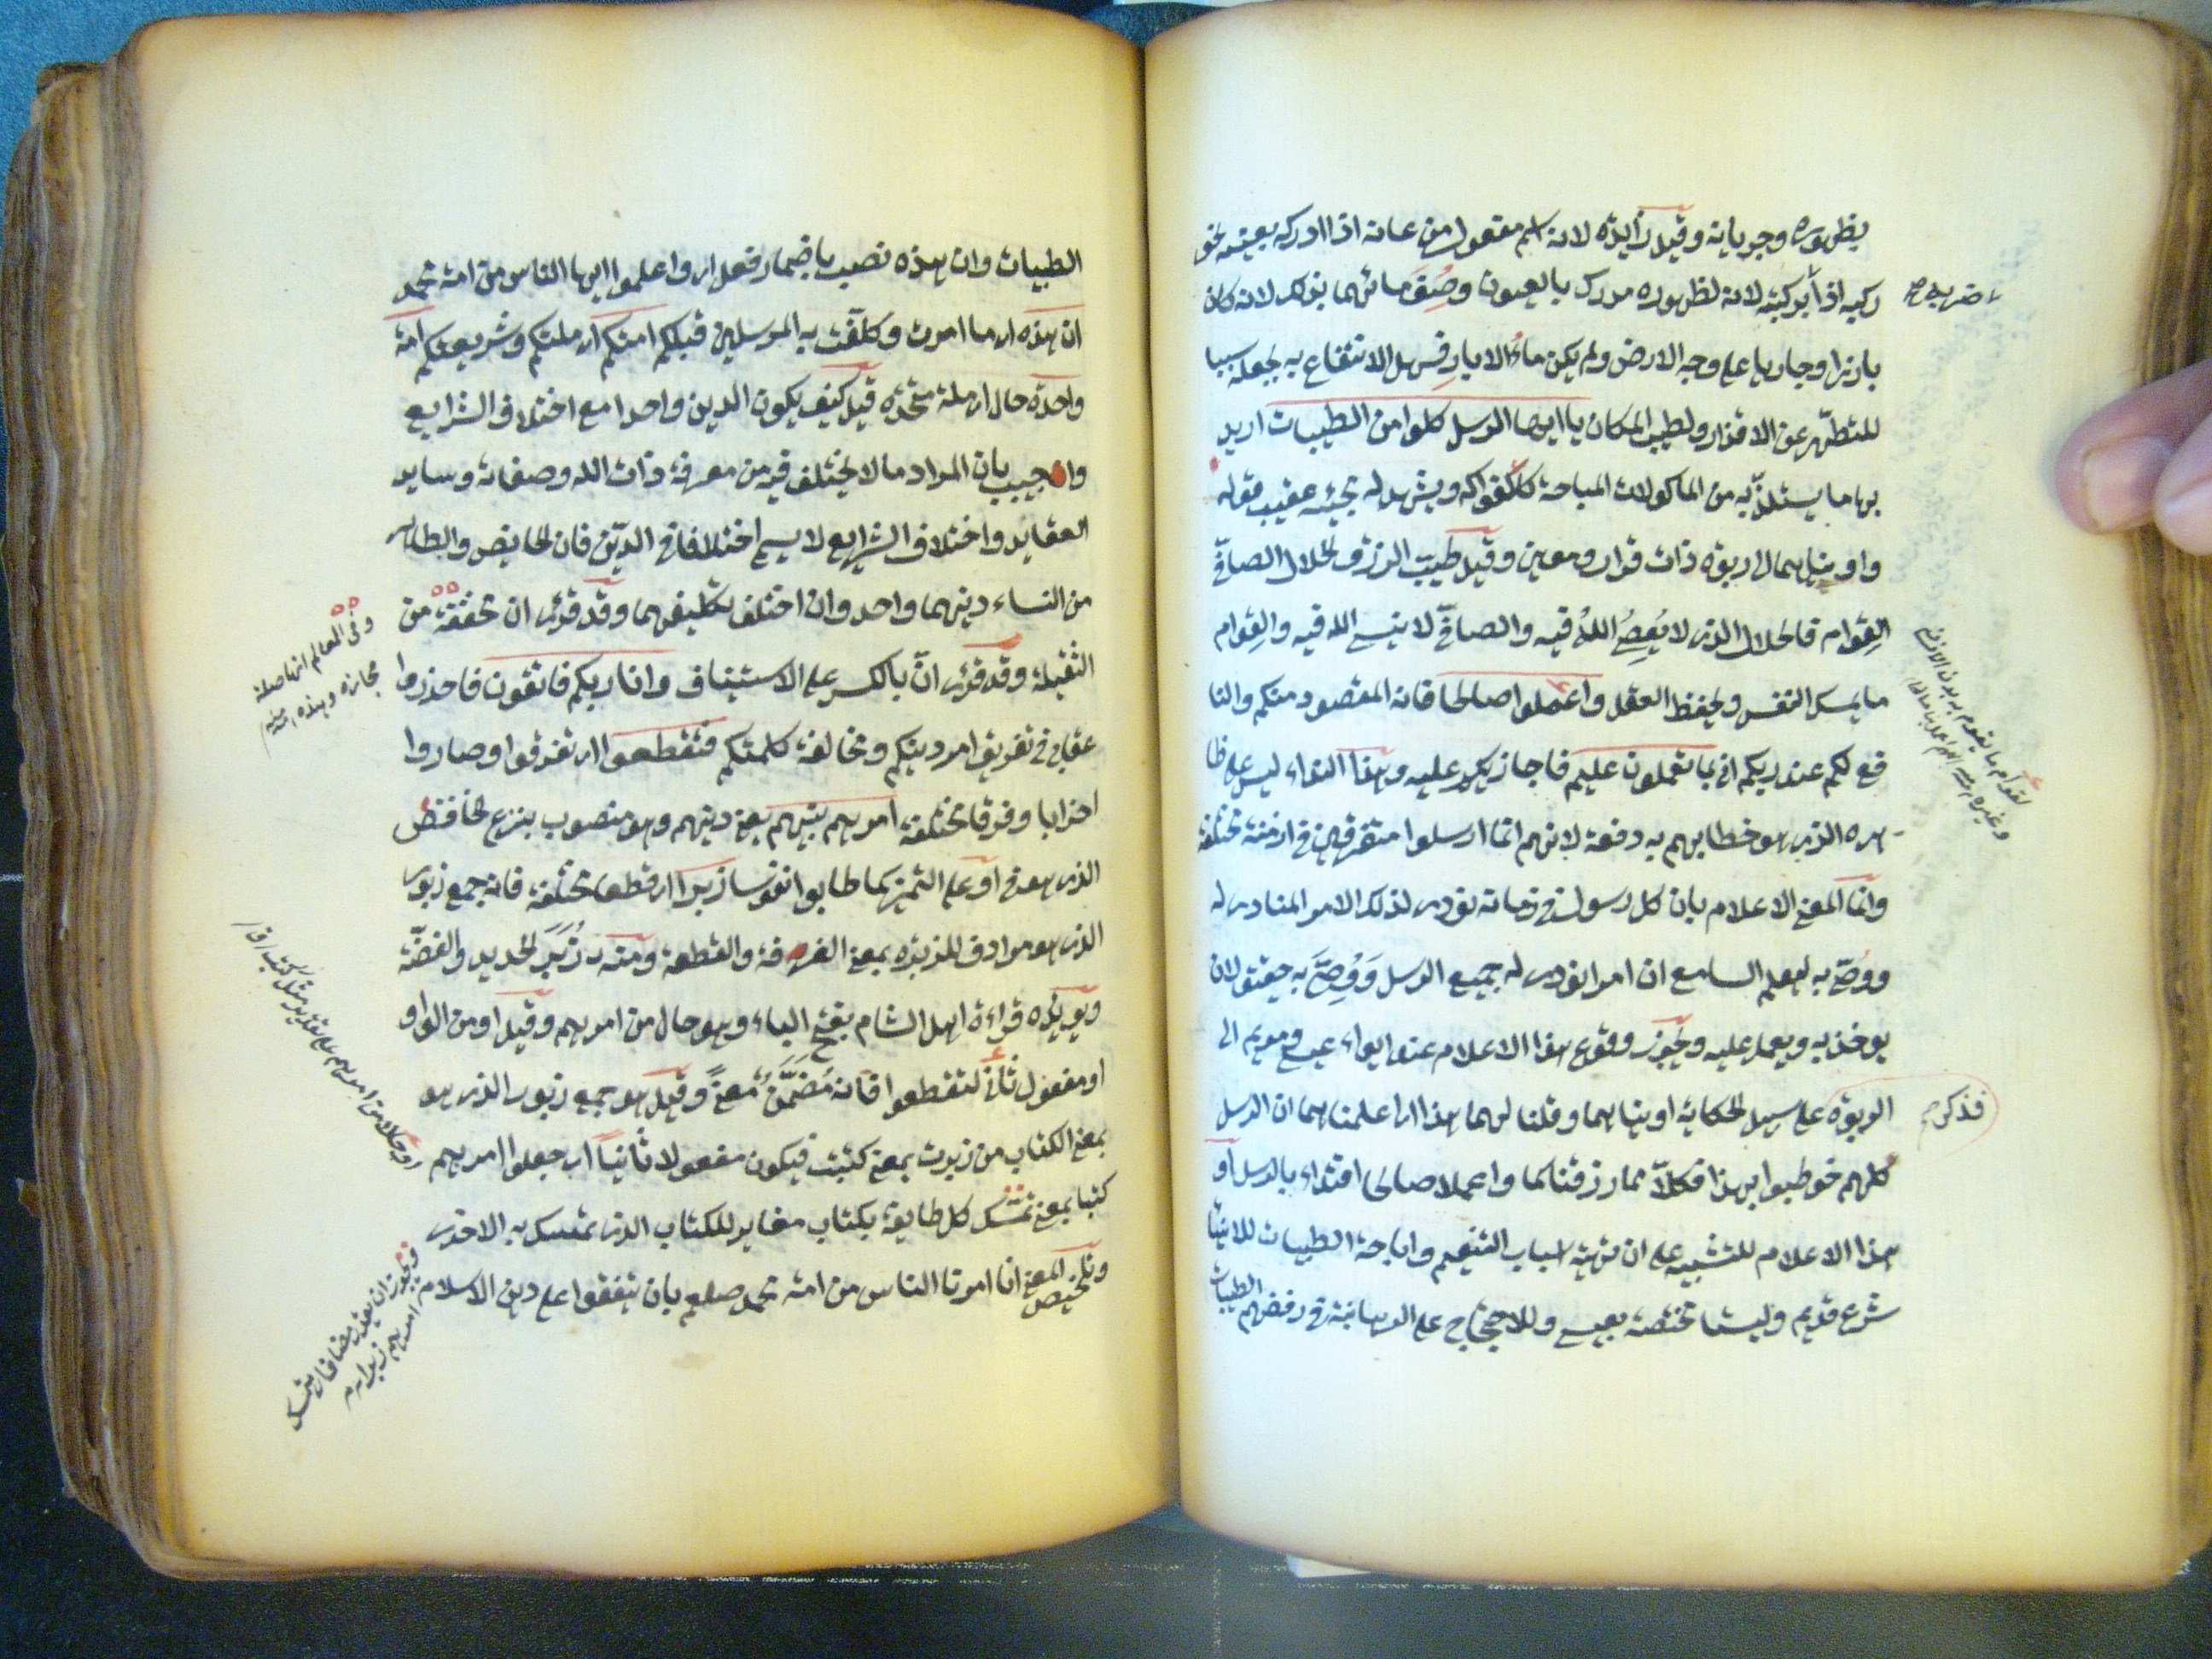 بظهوره وجريانه وقيل زايدة لانه اسم مفعول من عانه اذا ادركه بعينه نحو
ركبه اذا ركبته لانه لظهوره مدرك بالعيون وصف ماءهما بذلك لانه كان
بارزا وجاريا على وجه الارض ولم يكن ماء الابار فسهل الانتفاع به لجعله سببا
للتطهر عن الاقذار ولطيب المكان يا ايها الرسل كلوا من الطيبات اريد
بها ما يستلذ به من الماكولات المباحة كالفواكه ويشهد له تجيئه عقيب قوله
واويناهما الى ربوة ذات قرار ومعين وقيل طيب الرزق الحلال الصافي
القوام فالحلال الذي لا يعصى الله فيه والصافي لا ينسى الله فيه والقوام
ما يمسك النفس ويحفظ العقل واعملوا صالحا فانه المقصود منكم والنا
فع لكم عند ربكم اني بما تعملون عليم فاجازيكم عليه وهذا النداء ليس على ظا
هره الذي هو خطابهم به دفعة لانهم انما ارسلوا متفرقين في ازمنة مختلفة
وانما المعنى الاعلام بان كل رسول في زمانه نودي لذلك الامر المنادى له
ووصى به ليعلم السامع ان امرا نودي له جميع الرسل ووصي به حقيق لان
يوخذ به ويعمل عليه ويجوز وقوع هذا الاعلام عند ايواء عيسى ومريم الى
الربوة على سبيل الحكاية اويناهما وقلنا لهما هذا اى اعلمناهما ان الرسل
كلهم خوطبوا بهذا فكلا مما رزقناكما واعملا صالحا اقتداء بالرسل او
هذا الاعلام للتنبيه على ان تهيئة اسباب التنعيم واباحة الطيبات للانبيا
شرع قديم وليست مختصة بعيسى وللاحتجاج على الرهبانية في رفضهم الطيبات
فذكر
القوام ما يقوم به بدن الانسان
الطيبات وان هذه نصب باضمار فعل اى واعلموا ايها الناس من امة محمد
ان هذه اى ما امرت وكلفت به المرسلين قبلكم امتكم اى ملتكم وشريعتكم امة
واحدة حال اى ملة متحدة قيل كيف يكون الدين واحدا مع اختلاف الشرايع
واجيب بان المراد ما لا يختلف فيه من معرفة ذات الله وصفاته وساير
العقايد واختلاف الشرايع لا يسمى اختلافا في الدين فان الحايض والطاهر
من النساء دينهما واحد وان اختلف تكليفهما وقد قرئ ان مخففة من
الثقيلة وقد قرئ ان بالكسر على الاستيناف وانا ربكم فاتقون فاحذروا
عقابي في تفريق امر دينكم ومخالفة كلمتكم فتقطعوا اى تفرقوا وصاروا
احزابا وفرقا مختلفة امرهم بينهم يعني دينهم وهو منصوب بنزع الخافض
الذي هو في او على التمييز كما طابوا نفوسا زبرا اى قطعا مختلفة فانه جمع زبور
الذي هو مرادف للزبرة بمعنى الفرقة والقطعة ومنه زبر الحديد والفضة
ويويده قراءة اهل الشام بفتح الباء وهو حال من امرهم وقيل او من الواو
او مفعول ثان لتقطعوا فانه مضمن معنى وقيل هو جمع زبور الذي هو
بمعنى الكتاب من زبرت بمعنى كتبت فيكون مفعولا ثانيا اى جعلوا امرهم
كتبا بمعنى تمسك كل طايفة بكتاب مغاير للكتاب الذي تمسك به الاخرى
وتلخيص المعنى انا امرنا الناس من امة محمد صلعم بان يتفقوا على دين الاسلام
وفى العالم انها صلة